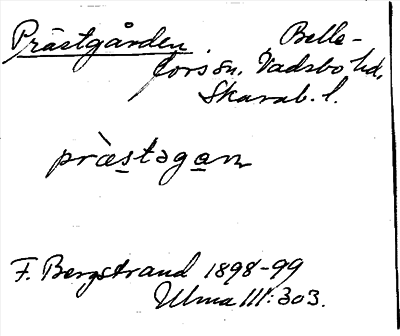 Prästgården. Belle-
fors sn. Vadsbo hd.
Skarab. l.
pràestagan
F. Bergstrand 1898-99
Ulma III: 303.